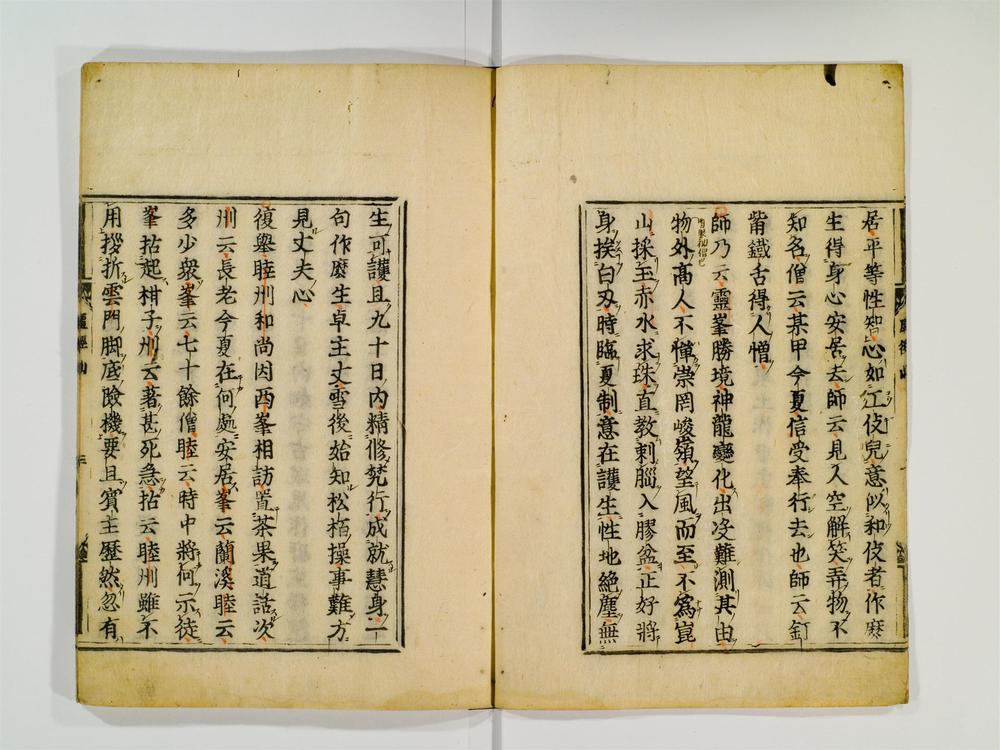 居平等性智心如江伎兒意似和伎者作麽
生得身心安居去師云見人空解笑弄物不
知名僧云某甲今夏信受奉行去也師云釘
觜鐵舌得人憎
師乃云靈峯勝境神龍變化出沒難測其由
物外高人不憚崇岡峻嶺望風而至不爲崑
山採玉赤水求珠直教刺腦入膠盆正好將
身挨白刃時臨夏制意在護生性地絶塵無
生可護且九十日內精修梵行成就慧身一
句作麽生卓主丈雪後始知松栢操事難方
見丈夫心
復舉睦州和尚因西峯相訪置茶果道話次
州云長老今夏在何處安居峯云蘭溪睦云
多少衆峯云七十餘僧睦云時中將何示徒
峯拈起柑子州云著甚死急拈云睦州雖不
用拶折雲門脚底險機要且賓主歷然忽有